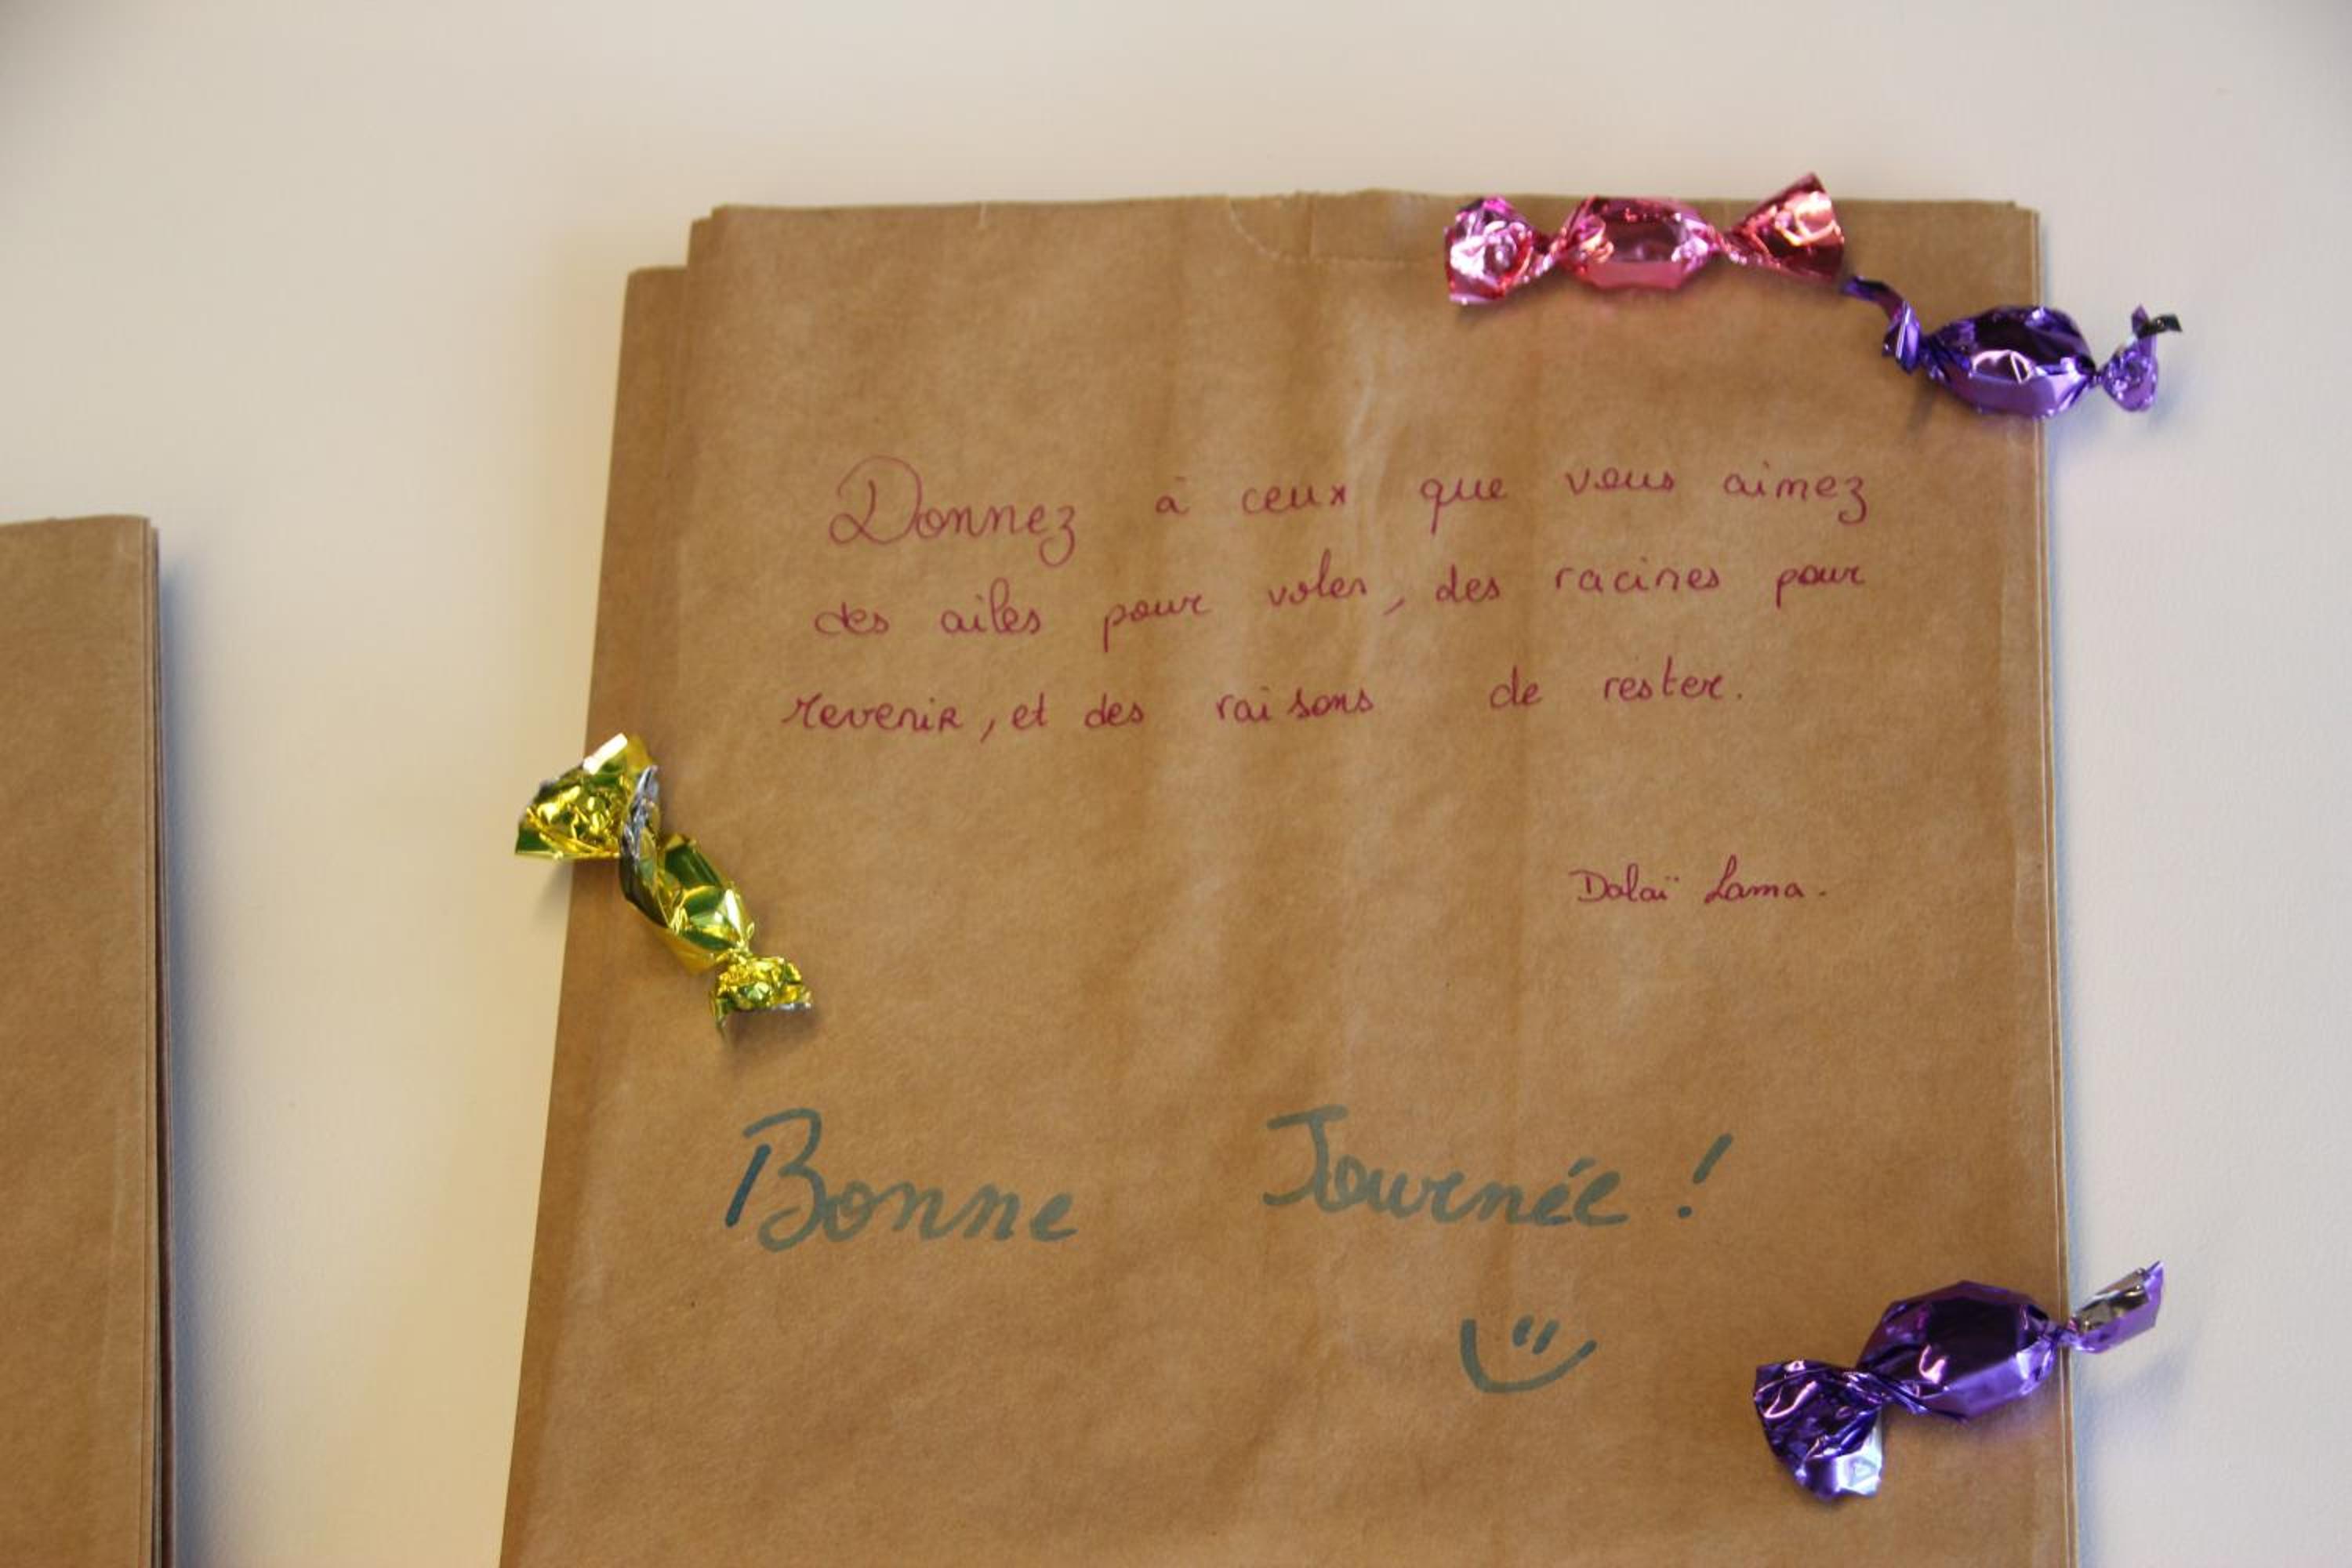 Donnez à ceux que vous aimez
des ailes pour voler, des racines pour
revenir, et des raisons de rester.
Dalaï Lama.
Bonne Journée !